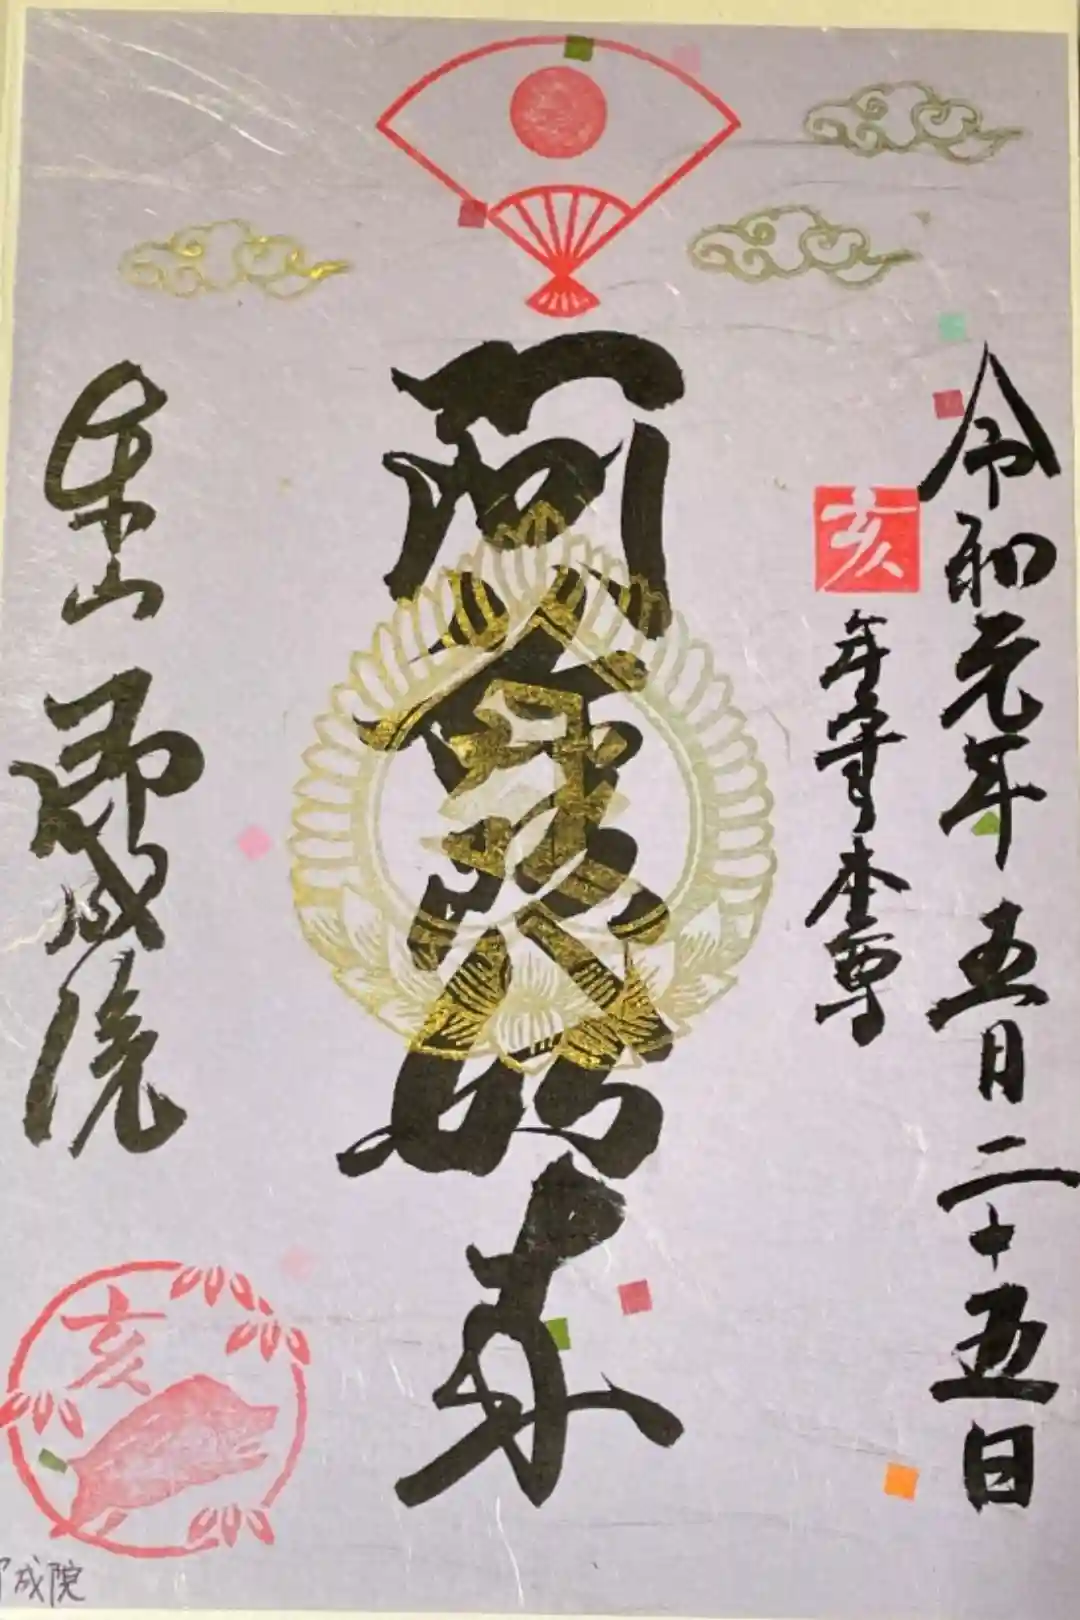 令和元年五月二十五日
亥年守本尊
阿弥陀如来
東山 即成院
亥
成院